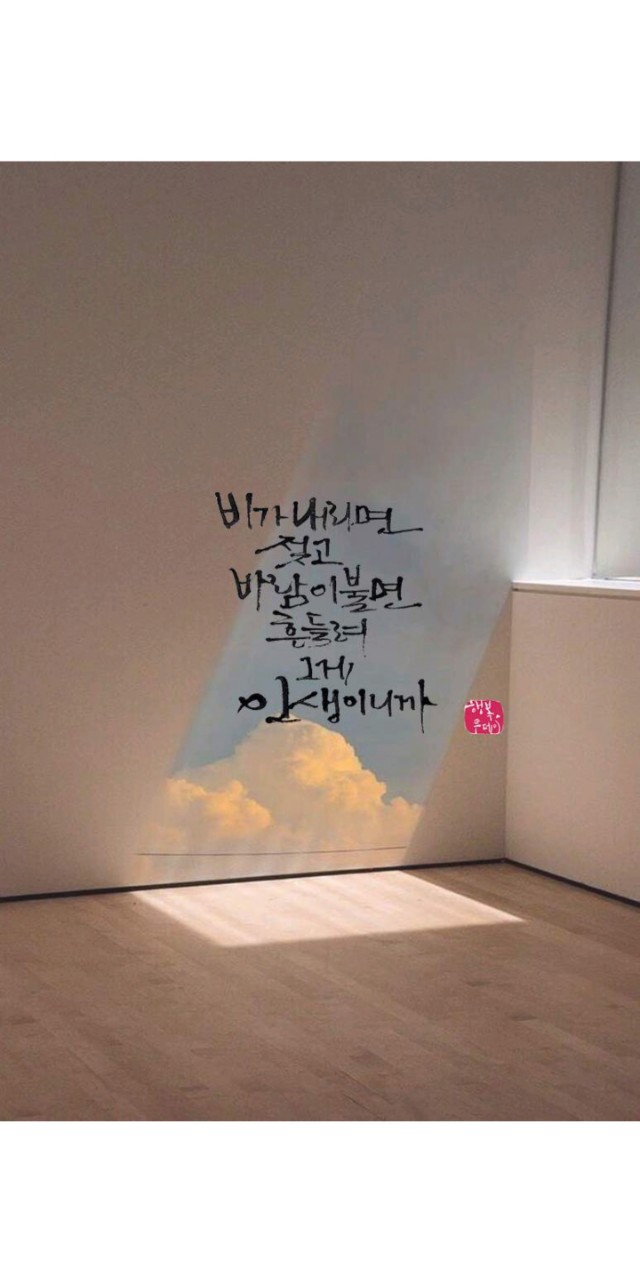 비가내리면
젖고
바람이불면
흔들려
그게
인생이니까
행복
투데이